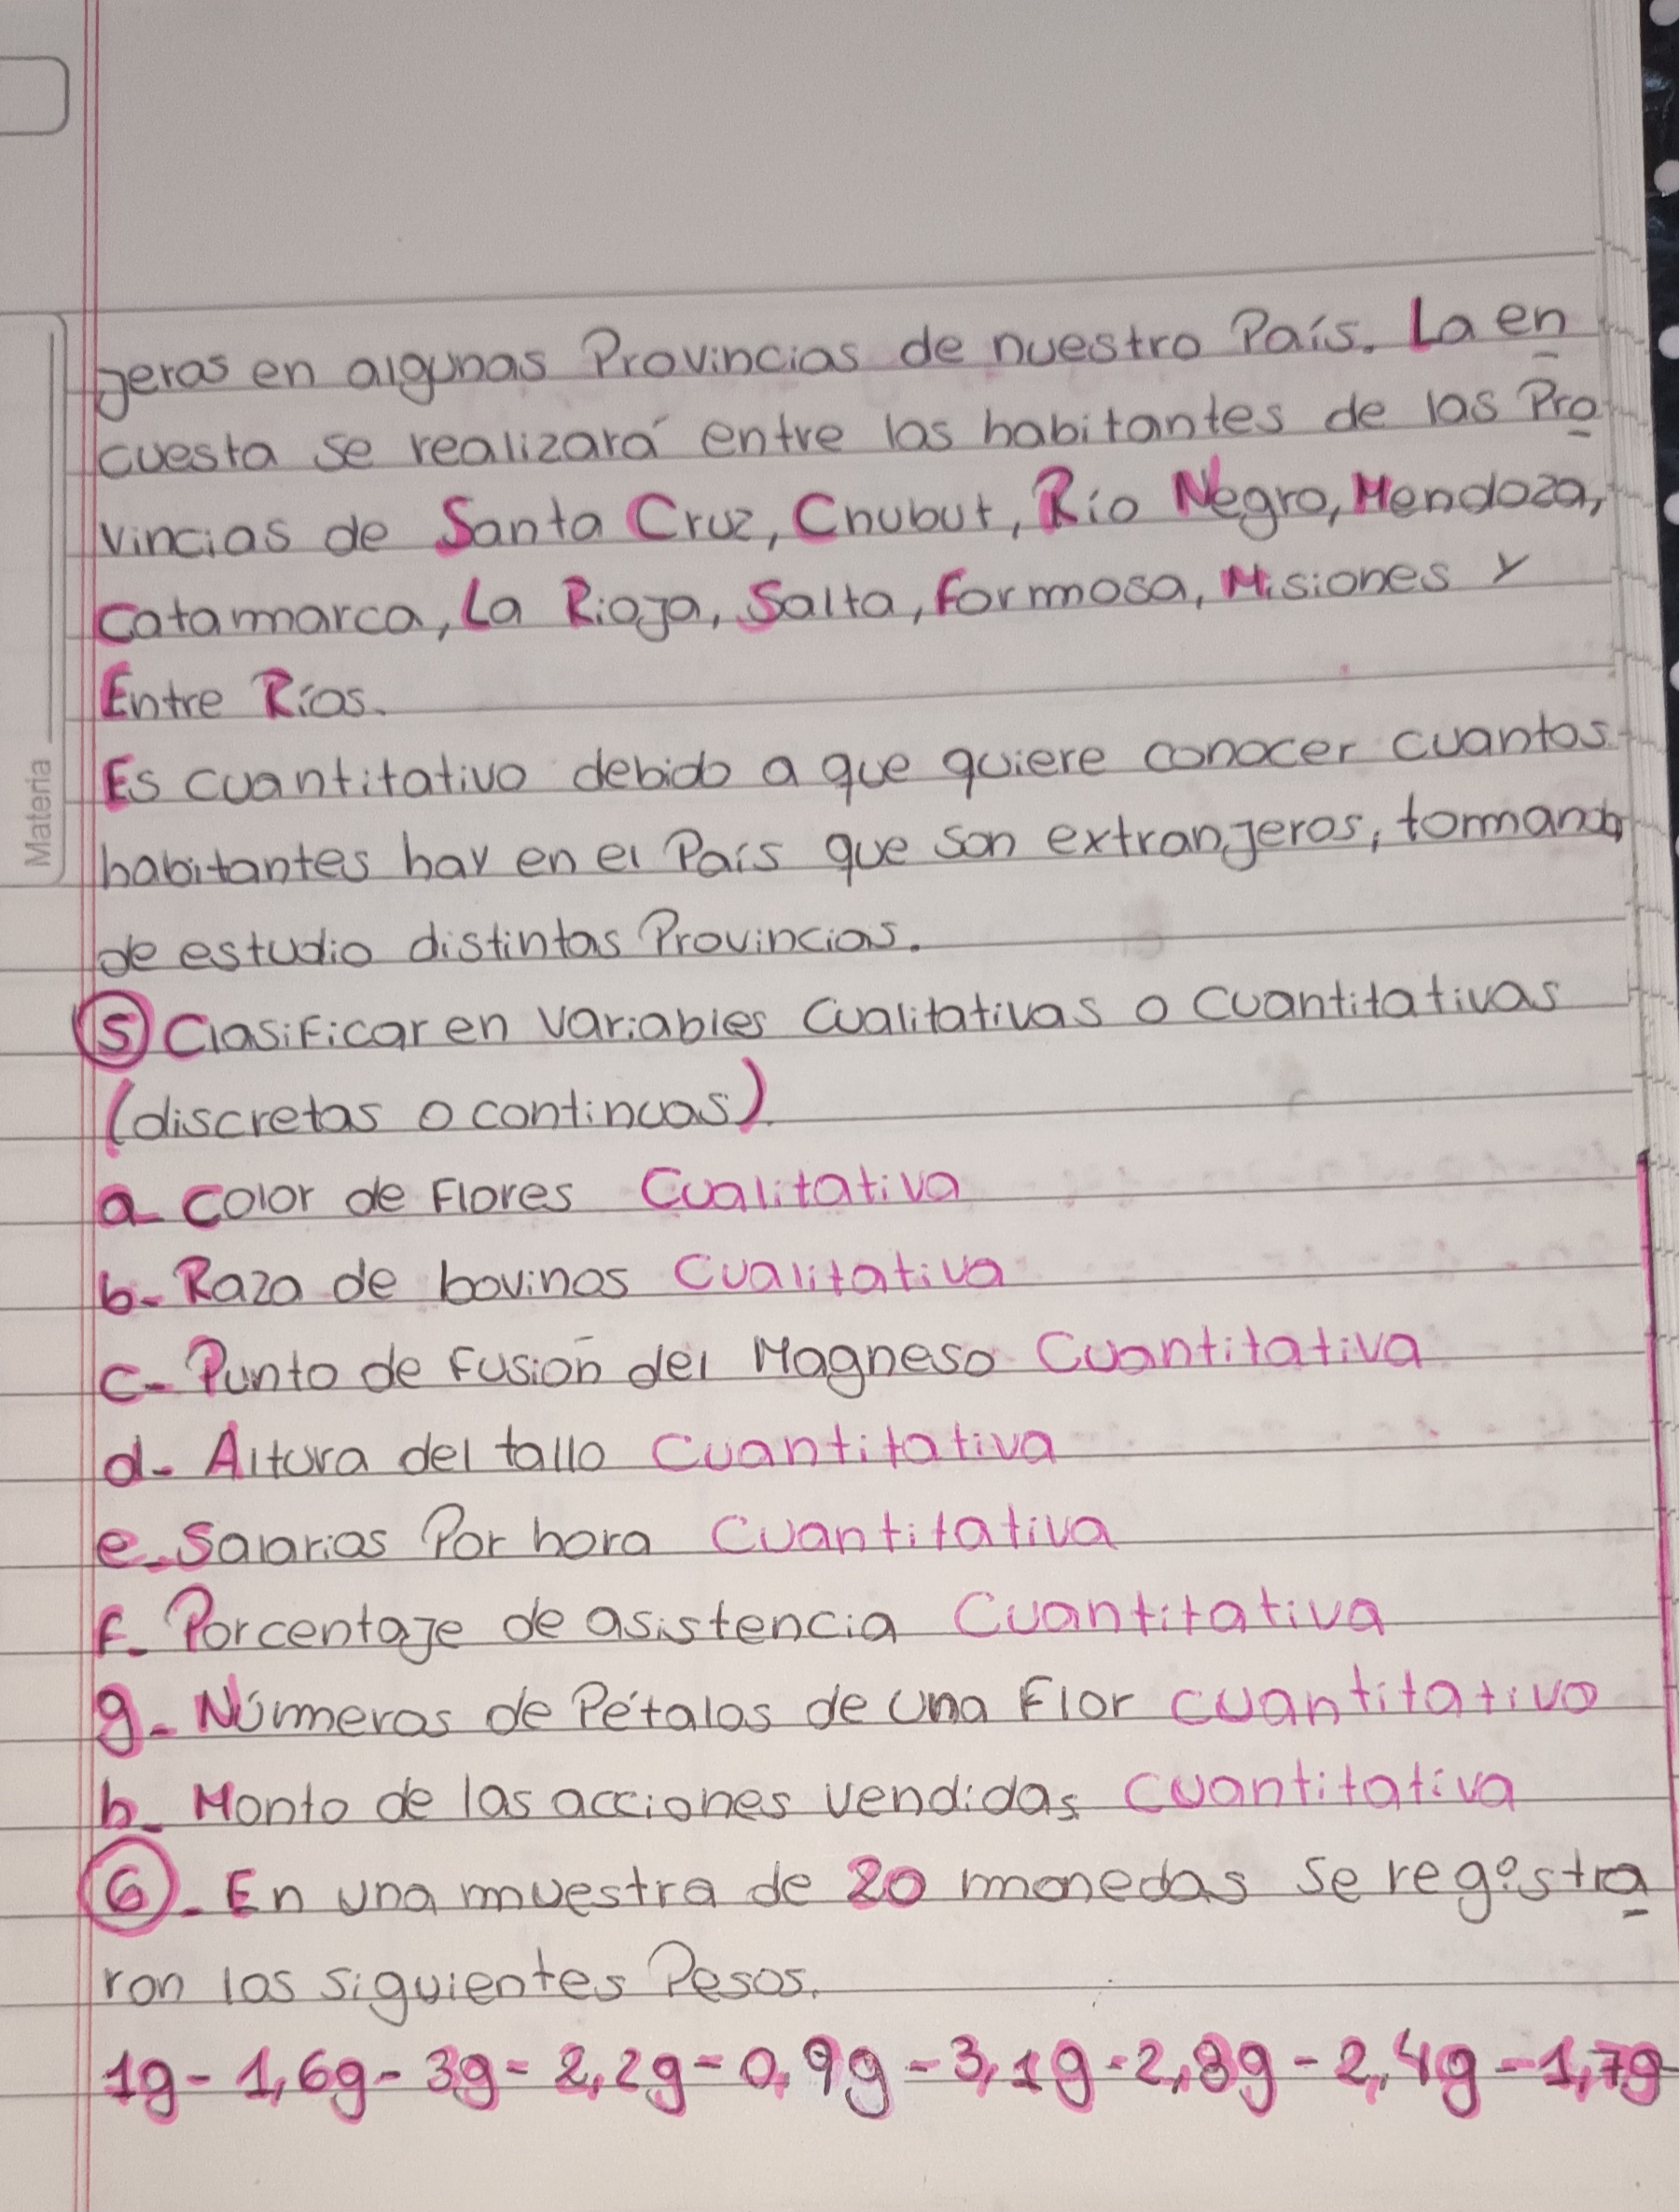 geros en algunas Provincias de nuestro País. La en
cuesta se realizará entre los habitantes de las Pro
vincias de Santa Cruz, Chubut, Río Negro, Mendoza,
Catamarca, La Rioja, Salta, Formosa, Misiones y
Entre Ríos.
Es cuantitativo debido a que quiere conocer cuantos
habitantes hay en el País que son extranjeros, tomando
de estudio distintas Provincias.
5 Clasificar en variables Cualitativas o Cuantitativas
(discretas o continuas).
a- Color de Flores Cualitativa
b- Raza de bovinos Cualitativa
c- Punto de Fusión del Magneso Cuantitativa
d- Altura del tallo Cuantitativa
e- Salarios Por hora Cuantitativa
f- Porcentaje de asistencia Cuantitativa
g- Números de Pétalos de una Flor cuantitativo
h- Monto de las acciones vendidas cuantitativa
6- En una muestra de 20 monedas se registra
ron los siguientes Pesos.
1g - 1,6g - 3g - 2,2g - 0,9g - 3,1g - 2,8g - 2,4g - 1,7g
Materia